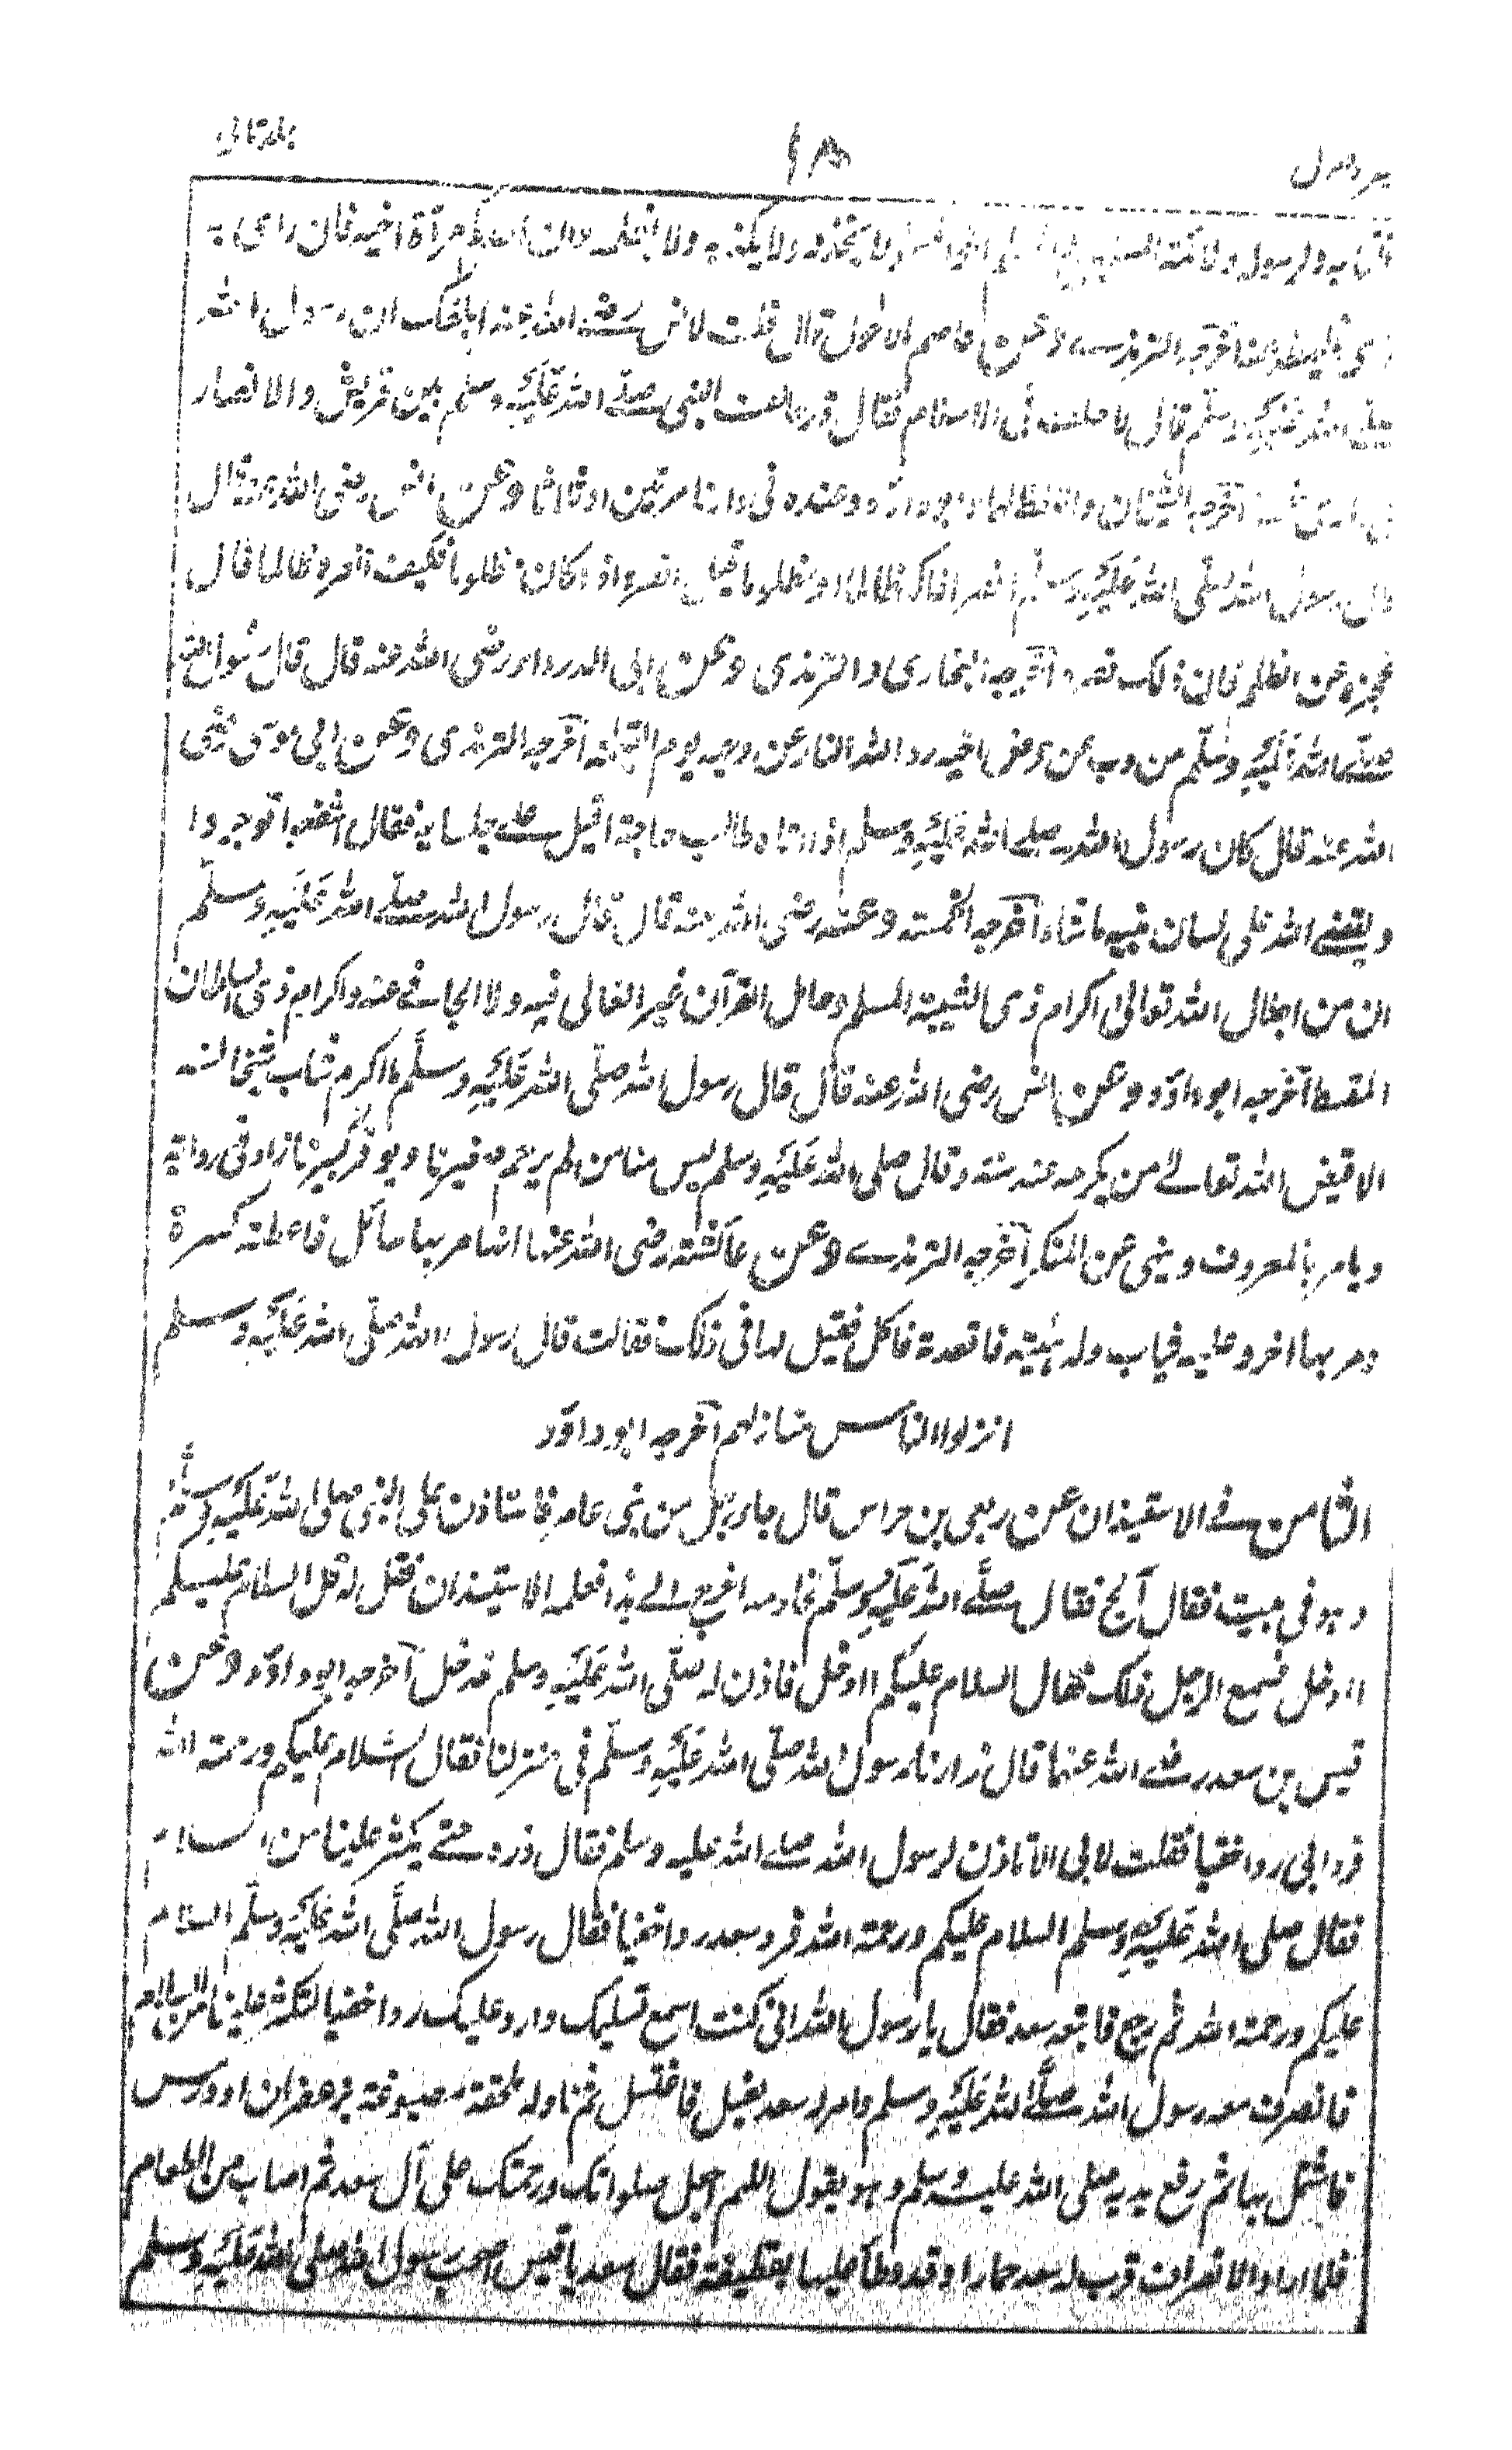 جلد ثانی
ولرسوله ولائمة المسلمين ولا يخذله ولا يكذبه ولا يظلمه وان احدكم مرآة اخيه فان رای به
فليمطه عنه اخرجه الترمذے وعن عاصم الاحول قال قلت لانس رضے الله عنه ابلغک ان رسول الله
صلی الله عَلَيْهِ وسلّم قال لا حلف فی الاسلام فقال قد حالف النبی صلّے الله عَلَيْهِ وسلم بين قريش والانصار
اخرجه الشيخان واللفظ لهما وابو داؤد وعنده فی دارنا مرتين او ثلاثا وعن انس رضی الله عنه قال
قال رسول الله صلّی الله عَلَيْهِ وسلّم انصر اخاک ظالما او مظلوما قيل انصره اذا كان مظلوما فكيف انصره ظالما قال
تحجزه عن الظلم فان ذلک نصره اخرجه البخاری والترمذی وعن ابی الدرداء رضی الله عنه قال قال رسول الله
صلّے الله عَلَيْهِ وسلّم من ذب عن عرض اخيه رد الله النار عن وجهه يوم القيامة اخرجه الترمذی وعن ابی موسی رضی
الله عنه قال كان رسول الله صلے الله عَلَيْهِ وسلم اذا اتاه طالب حاجة اقبل علے جلسايه فقال اشفعوا توجروا
ويقضے الله علی لسان نبيه ما شاء اخرجه الخمسة وعنه رضی الله عنه قال قال رسول الله صلّے الله عَلَيْهِ وسلّم
ان من اجلال الله تعالی اكرام ذی الشيبة المسلم وحامل القرآن غير الغالی فيه ولا الجافے عنه واكرام ذی السلطان
المقسط اخرجه ابو داؤد وعن انس رضی الله عنه قال قال رسول الله صلّی الله عَلَيْهِ وسلّم ما اكرم شاب شيخا لسنه
الا قيض الله تعالے من يكرمه عند سنه وقال صلی الله عَلَيْهِ وسلم ليس منا من لم يرحم صغيرنا ويوقر كبيرنا زاد فی رواية
ويامر بالمعروف وينهی عن المنكر اخرجه الترمذے وعن عائشة رضی الله عنها انها مر بها سائل فاعطته كسرة
ومر بها اخر وعليه ثياب وله هيئة فاقعدته فاكل فقيل لها فی ذلک فقالت قال رسول الله صلّی الله عَلَيْهِ وسلم
انزلوا الناس منازلهم اخرجه ابو داؤد
الثامن فے الاستيذان عن ربعی بن حراس قال جاء رجل من بنی عامر فاستاذن علی النبی صلی الله عَلَيْهِ وسلّم
وهو فی بيت فقال آلج فقال صلّے الله عَلَيْهِ وسلّم لخادمه اخرج الے هذا فعلمه الاستيذان فقل له قل السلام عليكم
اادخل فسمع الرجل ذلک فقال السلام عليكم اادخل فاذن له صلّی الله عَلَيْهِ وسلم فدخل اخرجه ابو داؤد وعن
قيس بن سعد رضے الله عنهما قال زارنا رسول الله صلّی الله عَلَيْهِ وسلّم فی منزلنا فقال السلام عليكم ورحمة الله
فرد ابی ردا خفيا فقلت لابی الا تاذن لرسول الله صلے الله عليه وسلم فقال ذره حتے يكثر علينا من السلام
فقال صلی الله عَلَيْهِ وسلم السلام عليكم ورحمة الله فرد سعد ردا خفيا فقال رسول الله صلّی الله عَلَيْهِ وسلّم السلام
عليكم ورحمة الله ثم رجع فاتبعه سعد فقال يا رسول الله انی كنت اسمع تسليمک وارد عليک ردا خفيا لتكثر علينا من السلام
فانصرف معه رسول الله صلّے الله عَلَيْهِ وسلم وامر له سعد بغسل فاغتسل ثم ناوله ملحفة مصبوغة بزعفران او ورس
فاشتمل بها ثم رفع يديه صلی الله عليه وسلم وهو يقول اللهم اجعل صلواتک ورحمتک علی آل سعد ثم اصاب من الطعام
فلما اراد الانصراف قرب له سعد حمارا وقد وطأ عليها بقطيفة فقال سعد يا قيس اصحب رسول الله صلی الله عَلَيْهِ وسلم